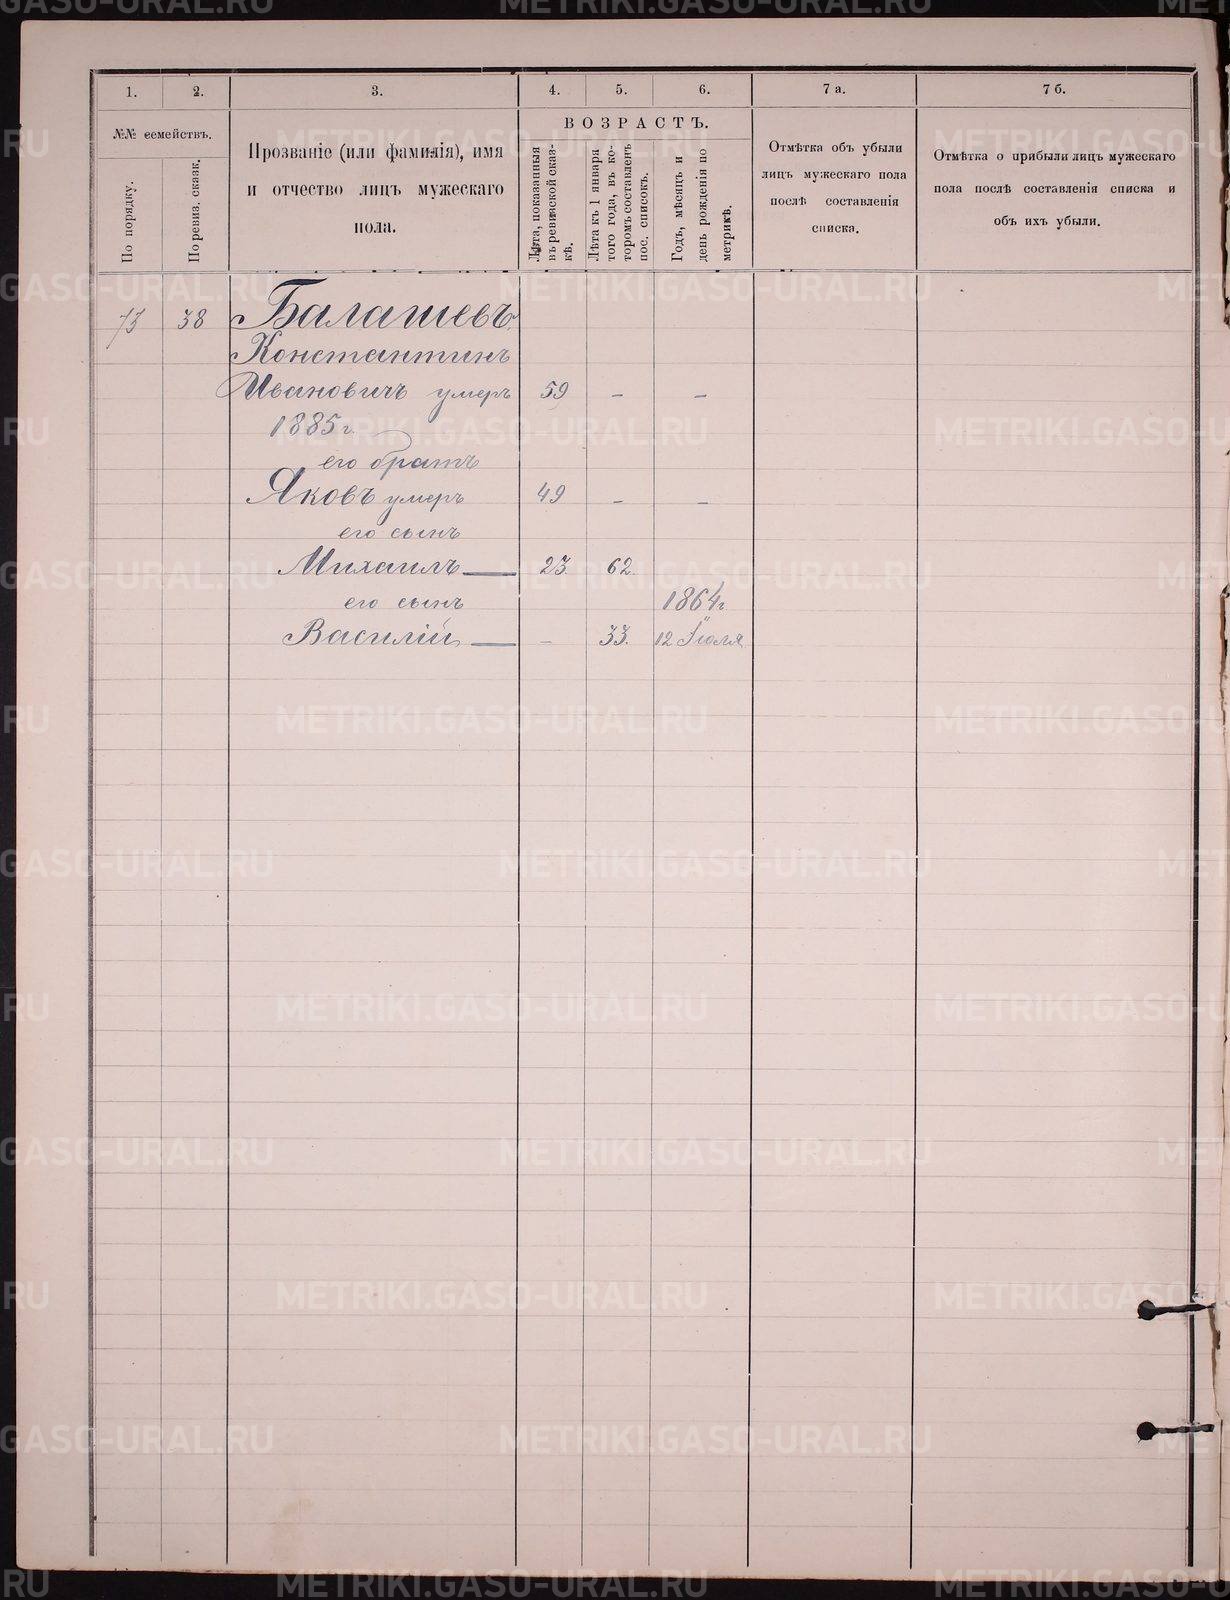 1.
2.
3.
4.
5.
6.
7 а.
7 б.
№№ семействъ.
По порядку.
По ревиз. сказк.
Прозваніе (или фамилія), имя
и отчество лицъ мужескаго
пола.
ВОЗРАСТЪ.
Лѣта, показанныя
въ ревизской сказ-
кѣ.
Лѣта къ 1 января
того года, въ ко-
торомъ составленъ
пос. списокъ.
Годъ, мѣсяцъ и
день рожденія по
метрикѣ.
Отмѣтка объ убыли
лицъ мужескаго пола
послѣ составленія
списка.
Отмѣтка о прибыли лицъ мужескаго
пола послѣ составленія списка и
объ ихъ убыли.
38 Балашевъ
Константинъ
Ивановичъ умеръ 59 – –
1885 г.
его братъ
Яковъ умеръ 49 – –
его сынъ
Михаилъ — 23. 62.
его сынъ 1864 г
Василій — – 33. 12 Іюля
METRIKI.GASO-URAL.RU